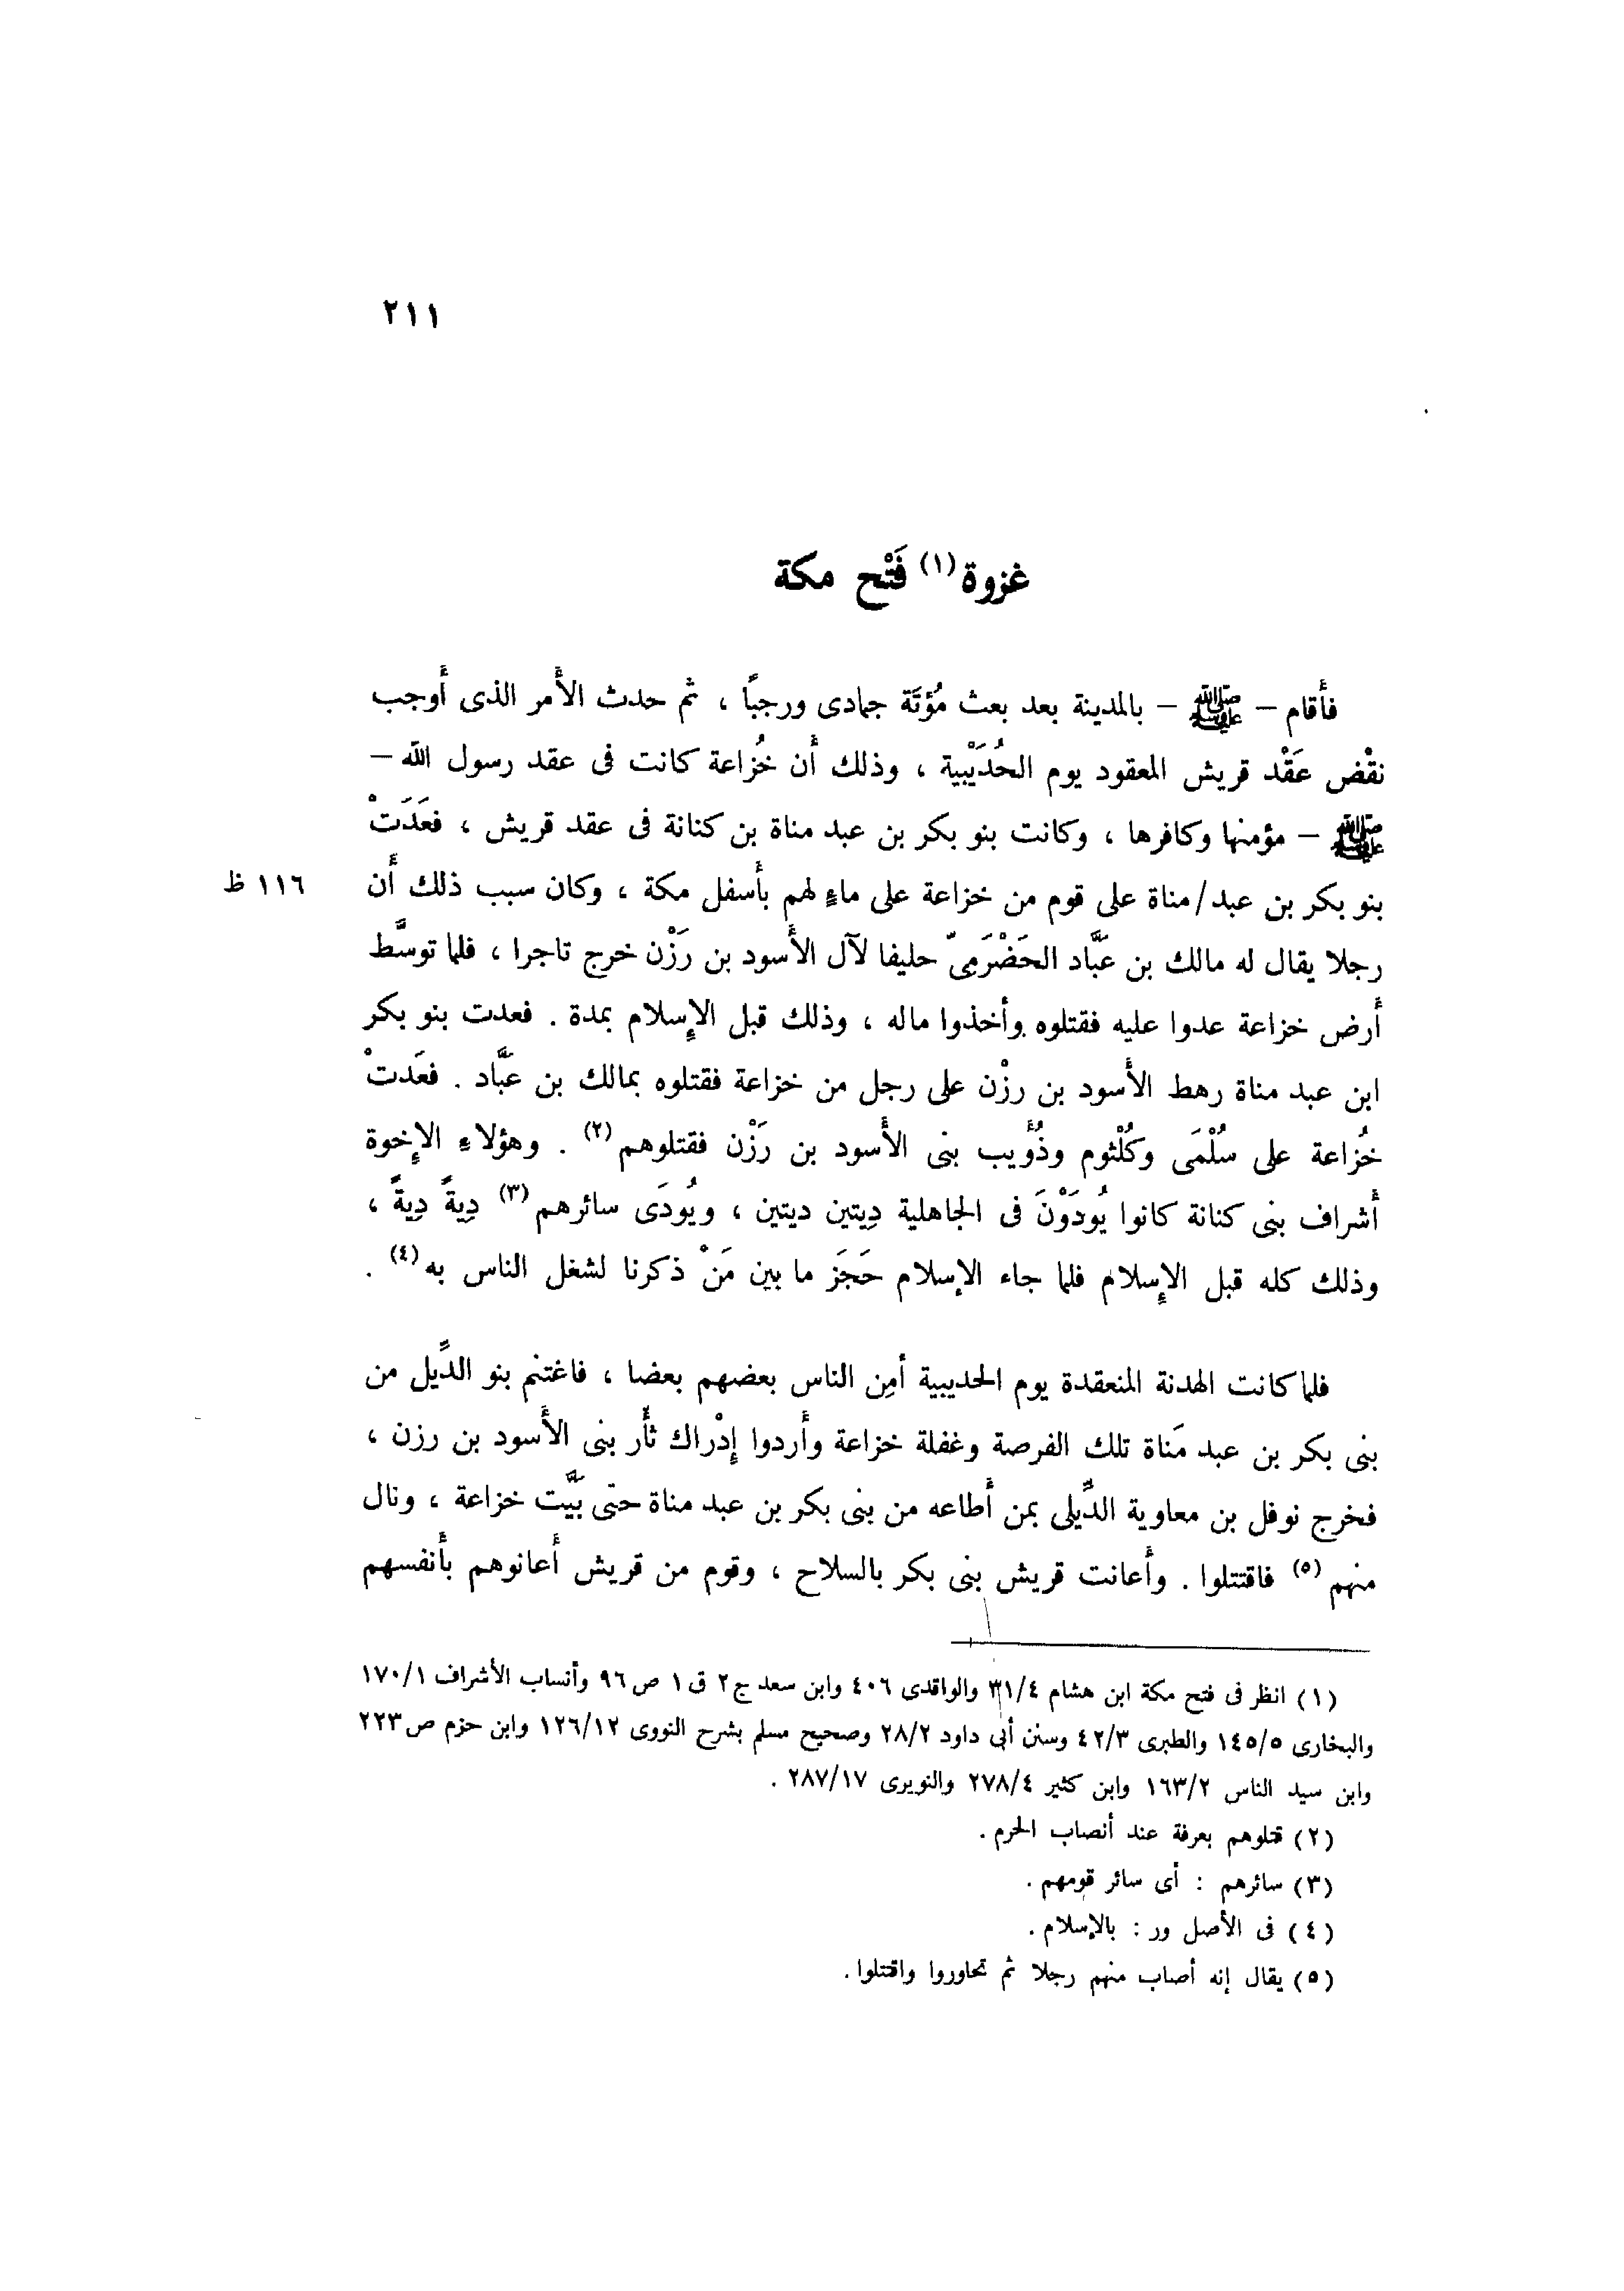 ٢١١
غزوة (١) فَتْح مكة
فأقام – ﷺ – بالمدينة بعد بعث مُؤتَة جمادى ورجبًا ، ثم حدث الأمر الذى أوجب
نقْض عَقْد قريش المعقود يوم الحُدَيْبية ، وذلك أن خُزاعة كانت فى عقد رسول الله –
ﷺ – مؤمنها وكافرها ، وكانت بنو بكر بن عبد مناة بن كنانة فى عقد قريش ، فعَدَتْ
بنو بكر بن عبد/مناة على قوم من خزاعة على ماءٍ لهم بأسفل مكة ، وكان سبب ذلك أن
١١٦ ظ
رجلا يقال له مالك بن عَبَّاد الحَضْرَمِىّ حليفا لآل الأسود بن رَزْن خرج تاجرا ، فلما توسَّط
أرض خزاعة عدوا عليه فقتلوه وأخذوا ماله ، وذلك قبل الإسلام بمدة . فعدت بنو بكر
ابن عبد مناة رهط الأسود بن رزْن على رجل من خزاعة فقتلوه بمالك بن عَبَّاد . فعَدَتْ
خُزاعة على سُلْمَى وكُلْثوم وذُؤَيب بنى الأسود بن رَزْن فقتلوهم (٢) . وهؤلاءِ الإخوة
أشراف بنى كنانة كانوا يُودَوْنَ فى الجاهلية دِيتين ديتين ، ويُودَى سائرهم (٣) دِيةً دِيةً ،
وذلك كله قبل الإسلام فلما جاء الإسلام حَجَز ما بين مَنْ ذكرنا لشغل الناس به (٤) .
فلما كانت الهدنة المنعقدة يوم الحديبية أمِن الناس بعضهم بعضا ، فاغتنم بنو الدِّيل من
بنى بكر بن عبد مَناة تلك الفرصة وغفلة خزاعة وأردوا إدْراك ثأْر بنى الأسود بن رزن ،
فخرج نوفل بن معاوية الدِّيلى بمن أطاعه من بنى بكر بن عبد مناة حتى بَيَّت خزاعة ، ونال
منهم (٥) فاقتتلوا . وأعانت قريش بنى بكر بالسلاح ، وقوم من قريش أعانوهم بأنفسهم
(١) انظر فى فتح مكة ابن هشام ٣١/٤ والواقدى ٤٠٦ وابن سعد ج٢ ق ١ ص ٩٦ وأنساب الأشراف ١٧٠/١
والبخارى ١٤٥/٥ والطبرى ٤٢/٣ وسنن أبى داود ٢٨/٢ وصحيح مسلم بشرح النووى ١٢٦/١٢ وابن حزم ص ٢٢٣
وابن سيد الناس ١٦٣/٢ وابن كثير ٢٧٨/٤ والنويرى ٢٨٧/١٧ .
(٢) قتلوهم بعرفة عند أنصاب الحرم .
(٣) سائرهم : أى سائر قومهم .
(٤) فى الأصل ور : بالإسلام .
(٥) يقال إنه أصاب منهم رجلا ثم تحاوروا واقتتلوا .